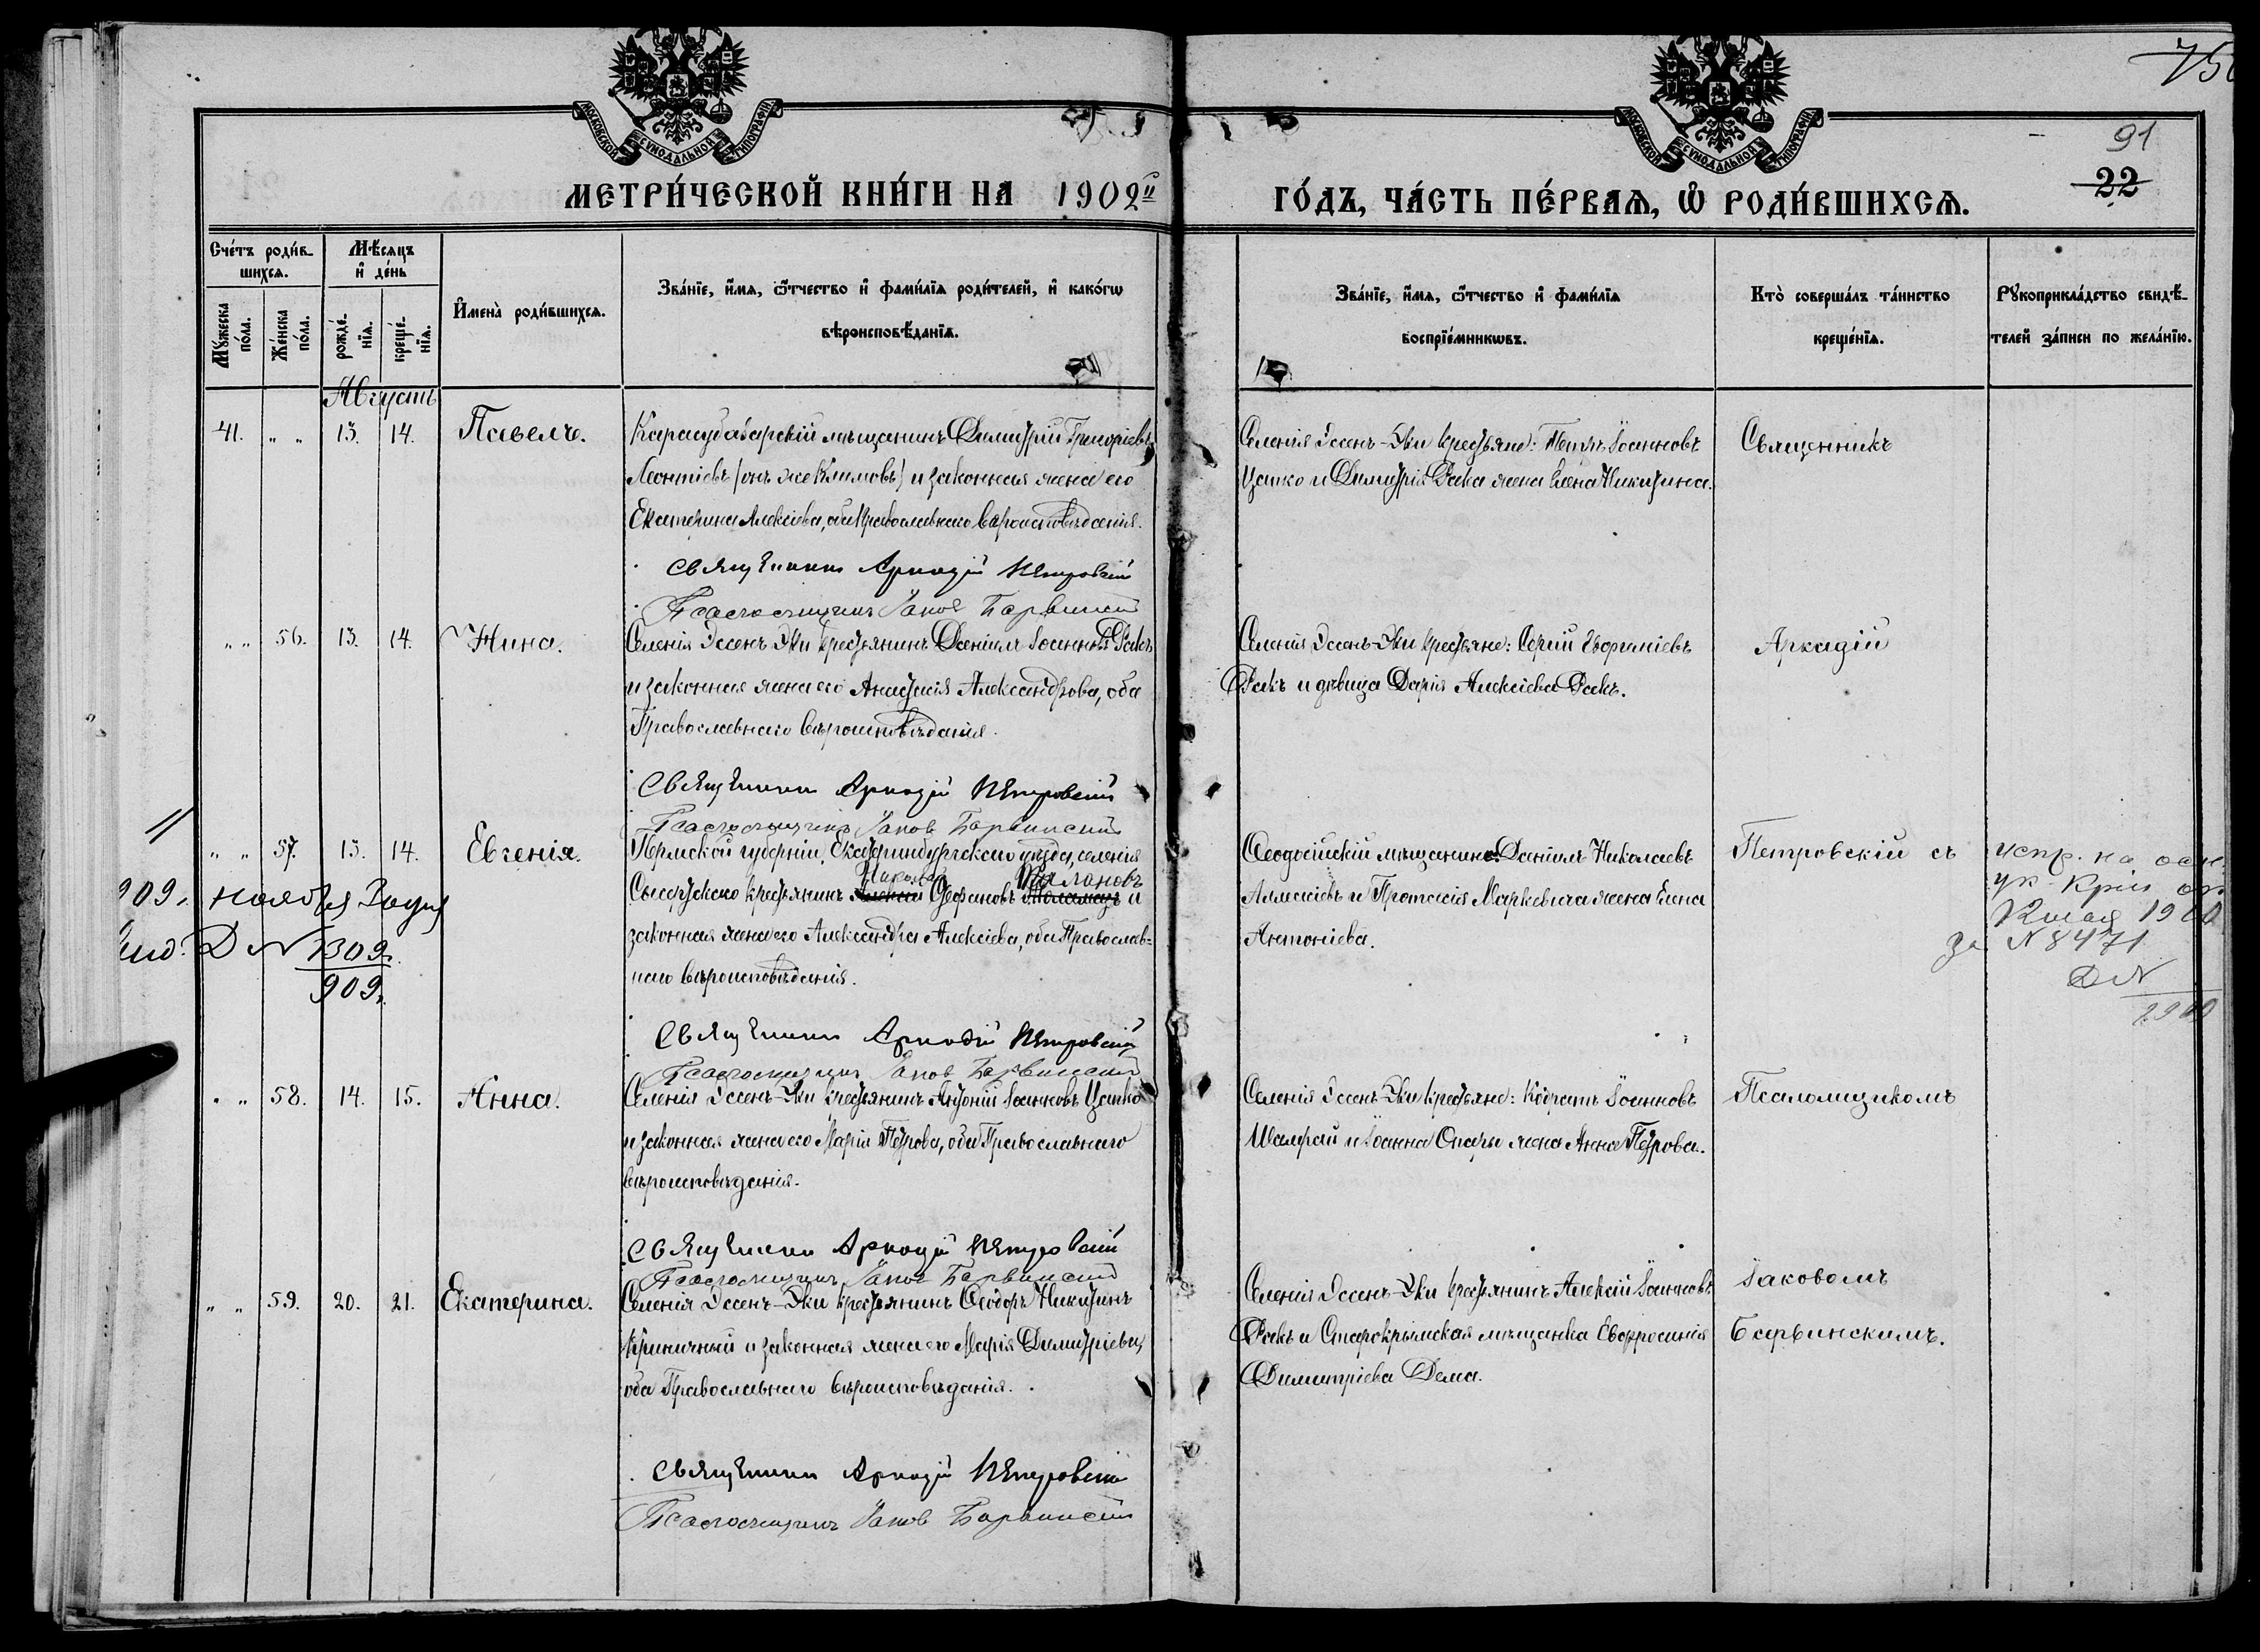 750
91
22
МОСКОВСКОЙ СѴНОДАЛЬНОЙ ТИПОГРАФІИ
МОСКОВСКОЙ СѴНОДАЛЬНОЙ ТИПОГРАФІИ
МЕТРИ́ЧЕСКОЙ КНИ́ГИ НА 1902й ГО́ДЪ, ЧА́СТЬ ПЕ́РВАѦ, Ѡ РОДИ́ВШИХСѦ.
Сче́тъ роди́в-
шихсѧ.
Мѣ́сѧцъ
и҆ де́нь
Мꙋ́жеска по́ла.
Же́нска по́ла.
рожде́нїѧ.
креще́нїѧ.
И҆мена̀ роди́вшихсѧ.
Зва́нїе, и҆́мѧ, ѻ҆́тчество и҆ фами́лїѧ роди́телей, и҆ како́гѡ
вѣроисповѣ́данїѧ.
Зва́нїе, и҆́мѧ, ѻ҆́тчество и҆ фами́лїѧ
воспрїе́мникѡвъ.
Кто̀ соверша́лъ та́инство
креще́нїѧ.
Рꙋкоприкла́дство свидѣ́-
телей за́писи по жела́нїю.
Августъ
41. " " 13. 14. Павелъ.
Карасубазарскій мѣщанинъ Димитрій Григоріевъ
Леонтіевъ (онъ же Климовъ) и законная жена его
Екатерина Алексіева, оба Православнаго вѣроисповѣданія.
Священникъ Аркадій Петровскій
Псаломщикъ Іаковъ Барвинскій
Селенія Эссенъ-Эки крестьяне: Петръ Іоанновъ
Цапко и Димитрія Рака жена Елена Никитина.
Священникъ
" " 56. 13. 14. Нина.
Селенія Эссенъ Эки крестьянинъ Даніилъ Іоанновъ Ракъ
и законная жена его Анастасія Александрова, оба
Православнаго вѣроисповѣданія.
Священникъ Аркадій Петровскій
Псаломщикъ Іаковъ Барвинскій
Селенія Эссенъ-Эки крестьяне: Сергій Евграфіевъ
Ракъ и дѣвица Дарія Алексіева Ракъ.
Аркадій
" " 57. 13. 14. Евгенія.
Пермской губерніи, Екатеринбургскаго уѣзда, селенія
Сысертскаго крестьянинъ Алексій Стефановъ и
законная жена его Александра Алексіева, оба Православ-
наго вѣроисповѣданія.
Священникъ Аркадій Петровскій
Псаломщикъ Іаковъ Барвинскій
Ѳеодосійскій мѣщанинъ Даніилъ Николаевъ
Алмазовъ и Протасія Маркевича жена Елена
Антоніева.
Петровскій съ
909. ноября
Д N 1309
909.
испр. на осн.
ук. Крім
1900
за N 8471
Д N
" " 58. 14. 15. Анна.
Селенія Эссенъ-Эки крестьянинъ Антоній Іоанновъ Цапко
и законная жена его Марія Петрова, оба Православнаго
вѣроисповѣданія.
Священникъ Аркадій Петровскій
Псаломщикъ Іаковъ Барвинскій
Селенія Эссенъ-Эки крестьяне: Кодратъ Іоанновъ
Шамрай и Іоанна Опары жена Анна Петрова.
Псаломщикомъ
" " 59. 20. 21. Екатерина.
Селенія Эссенъ-Эки крестьянинъ Ѳеодоръ Никитинъ
Криничный и законная жена его Марія Димитріева,
оба Православнаго вѣроисповѣданія.
Священникъ Аркадій Петровскій
Псаломщикъ Іаковъ Барвинскій
Селенія Эссенъ-Эки крестьянинъ Алексій Іоанновъ
Ракъ и Старокрымская мѣщанка Евфросинія
Димитріева Дема.
Іаковомъ
Барвинскимъ.